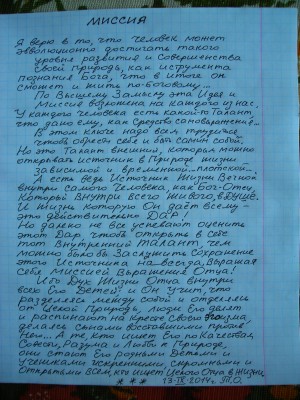 МИССИЯ
Я верю в то, что человек может
эволюционно достигать такого
уровня развития и Совершенства
Своей Природы, как иструмента
познания Бога, что в итоге он
сможет и жить по-Боговому...
По Высшему Замыслу эта Идея и
Миссия возложена на каждого из нас.
У каждого человека есть какой-то Талант,
что дано ему, как средство самовыражения...
В этом ключе надо всем трудиться,
чтобы обрести себя и быть самим собой.
Но это Талант внешний, который можно
открывать источник в Природе жизни
зависимой и временной... плотской...
А есть ведь Источник Жизни Вечной
внутри самого Человека, как Бог-Отец
Который внутри всего живого, в Душе.
И Жизнь которую Он даёт всему -
это действительно Дар!
Но далеко не все успевают оценить
этот Дар чтобы открыть в себе
тот Внутренний Талант, чем
можно было бы заслужить Сохранение
этого Источника навсегда, выражая
себя Миссией Выражения Отца!
Ибо Дух Жизни Отца внутри
всех Его Детей и Он Учит, что
разделяясь между собой и отделяясь
от Целой Природы, люди Его делят
и распинают на кресте Своего Эгоизма,
делаясь сынами восставшими против
Него... А те, кто ищет Его по Качествам
Совести, Разума и Любви к Природе,
они станут Его родными Детьми и
Учениками искренними, скромными и
открытыми всем, кто ищет Целого Отца в Жизни.
* * * 13-IX-2014г. П.О.